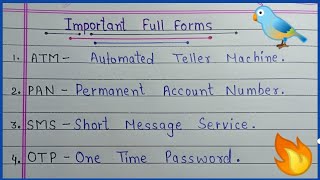 Important Full Forms
1. ATM - Automated Teller Machine.
2. PAN - Permanent Account Number.
3. SMS - Short Message Service.
4. OTP - One Time Password.